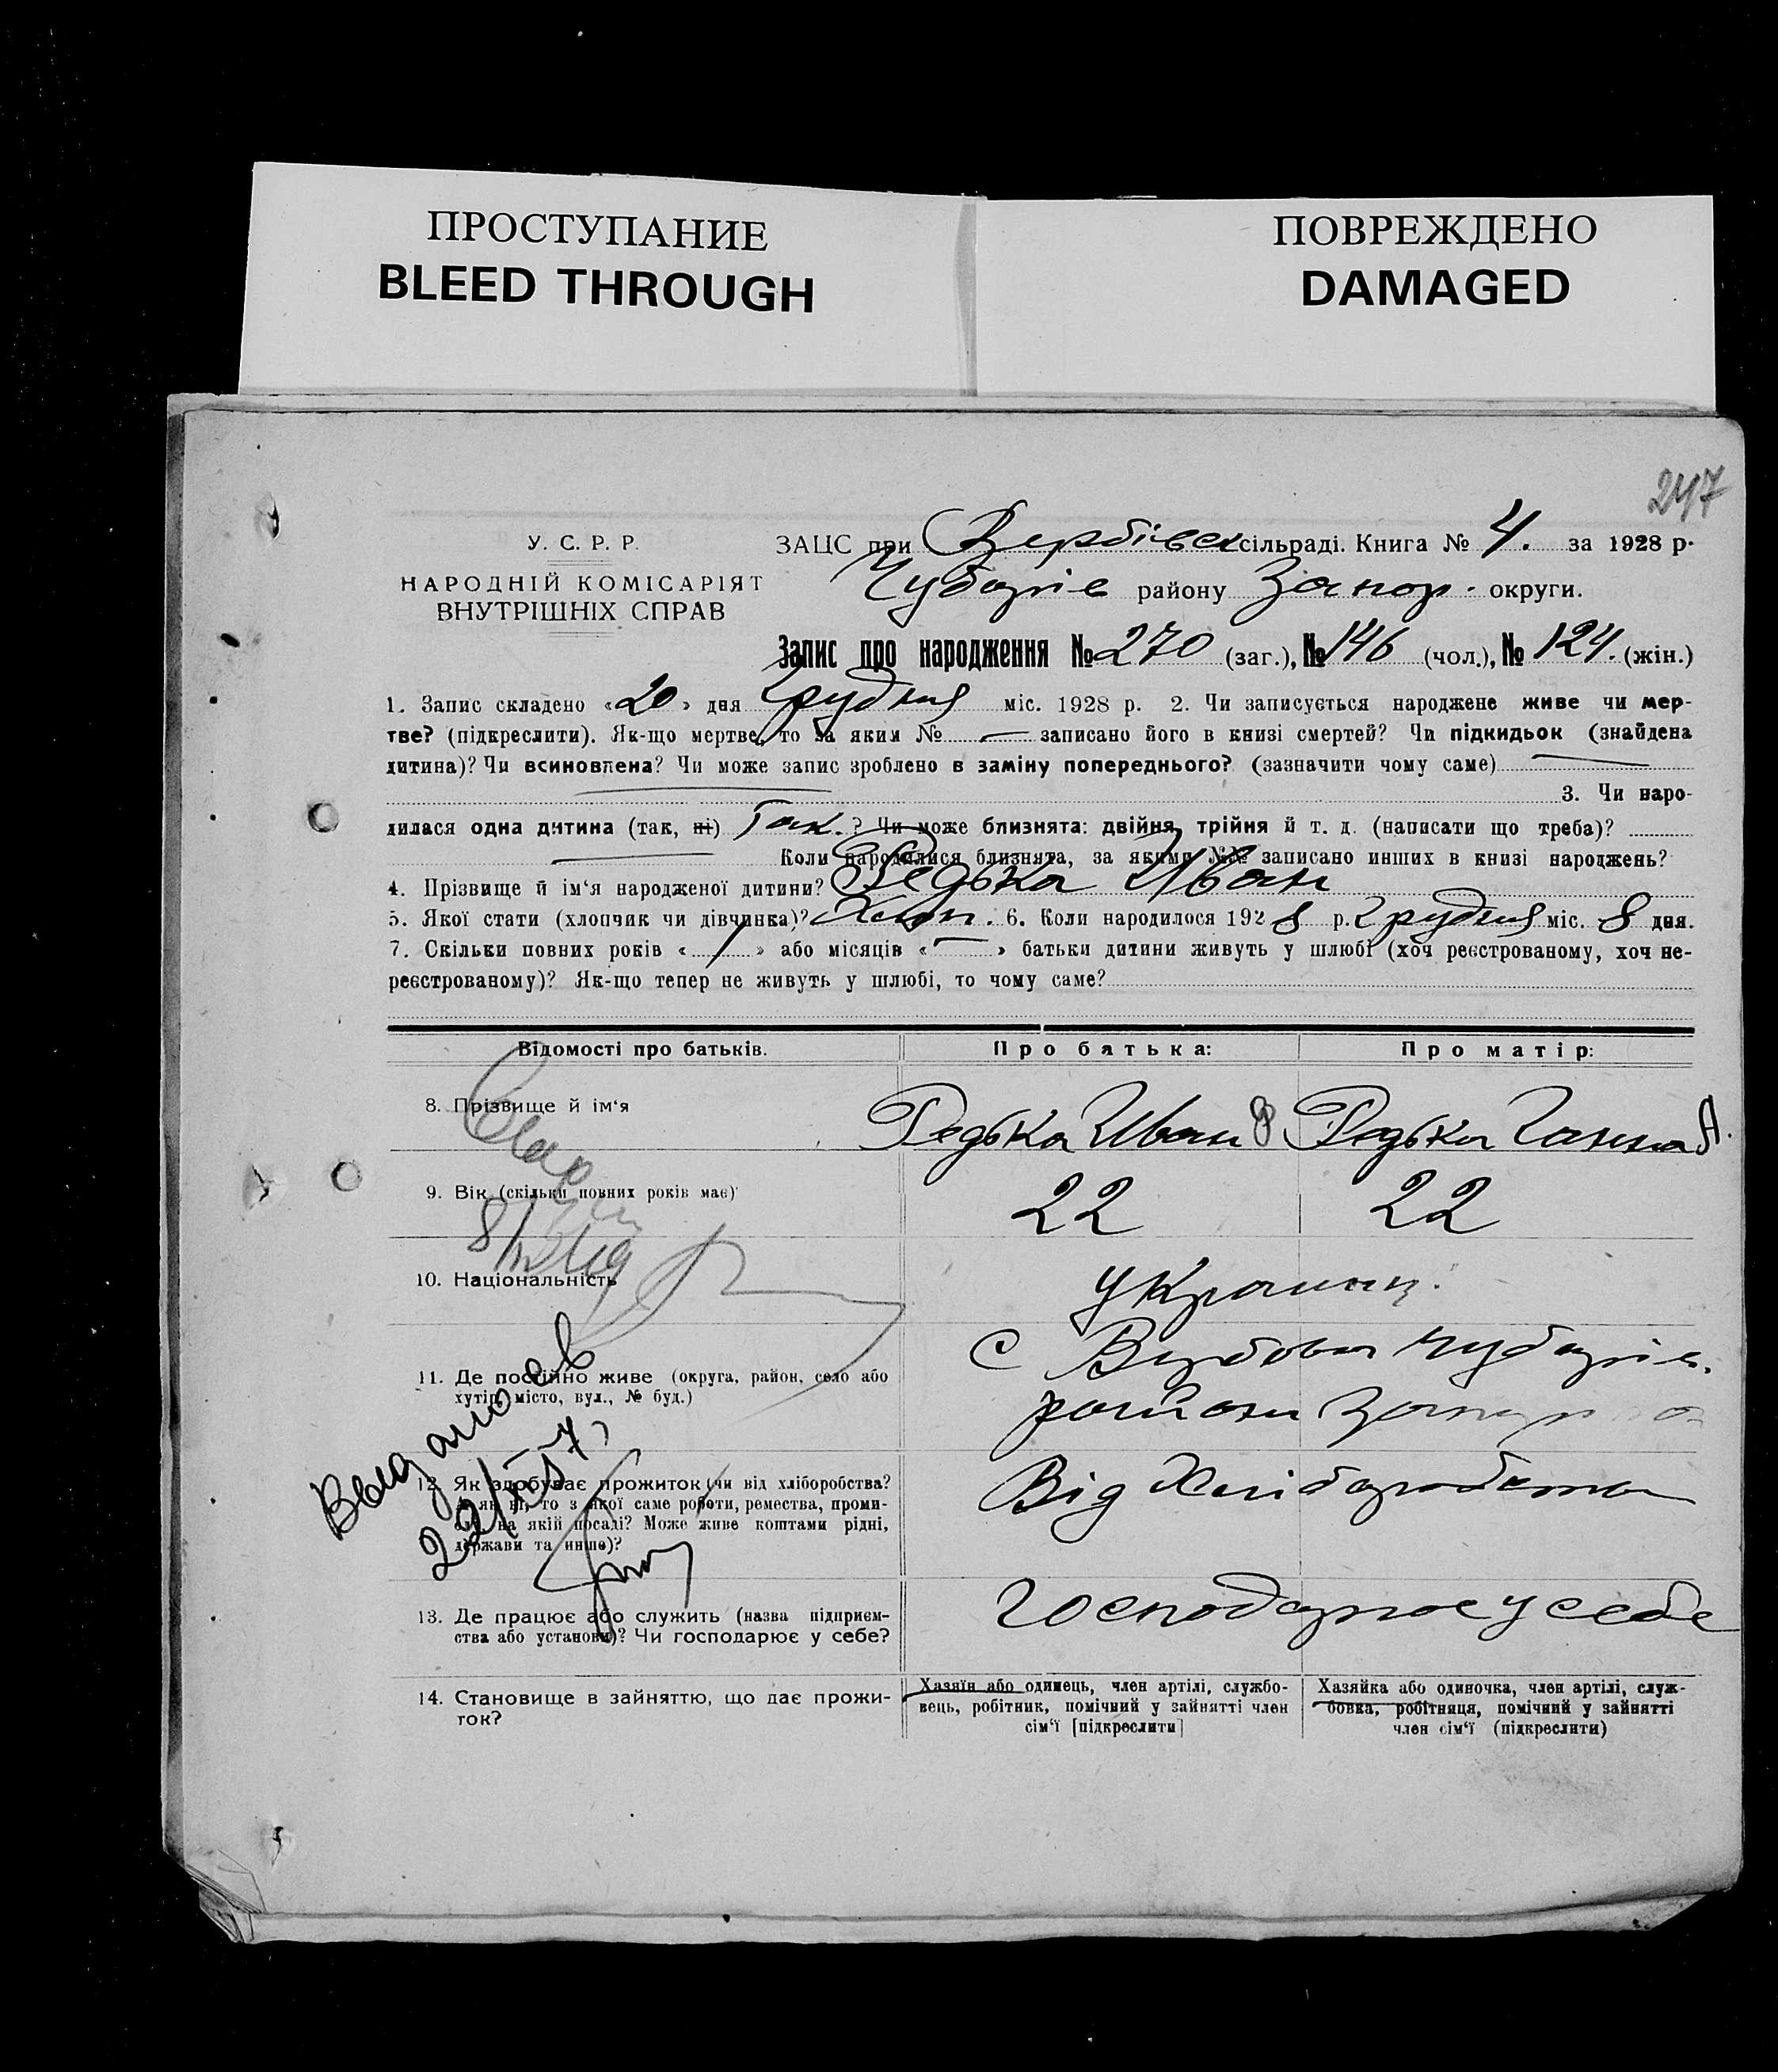 ПРОСТУПАНИЕ
BLEED THROUGH
ПОВРЕЖДЕНО
DAMAGED
247
У. С. Р. Р.
НАРОДНІЙ КОМІСАРІЯТ
ВНУТРІШНІХ СПРАВ
ЗАЦС при Вербівск сільраді. Книга № 4. за 1928 р.
Чубарів району Запор. округи.
Запис про народження № 270 (заг.), № 146 (чол.), № 124. (жін.)
1. Запис складено «20» дня Грудня міс. 1928 р. 2. Чи записується народжене живе чи мер-
тве? (підкреслити). Як-що мертве, то за яким № — записано його в книзі смертей? Чи підкидьок (знайдена
дитина)? Чи всиновлена? Чи може запис зроблено в заміну попереднього? (зазначити чому саме) —
3. Чи наро-
дилася одна дитина (так, ні) Так.? Чи може близнята: двійня, трійня й т. д. (написати що треба)?
— Коли народилися близнята, за якими №№ записано инших в книзі народжень?
4. Прізвище й ім‘я народженої дитини? Редька Иван
5. Якої стати (хлопчик чи дівчинка)? Хлоп. 6. Коли народилося 1928 р. Грудня міс. 8 дня.
7. Скільки повних років « 1 » або місяців « — » батьки дитини живуть у шлюбі (хоч реєстрованому, хоч не-
реєстрованому)? Як-що тепер не живуть у шлюбі, то чому саме?
Відомості про батьків. Про батька: Про матір:
8. Прізвище й ім‘я Редька Иван Ф Редька Ганна А.
9. Вік (скільки повних років має) 22 22
10. Національність Украинц.
11. Де постійно живе (округа, район, село або
хутір, місто, вул., № буд.)
С Вербова Чубарів.
району
12. Як здобуває прожиток (чи від хліборобства?
А як ні, то з якої саме роботи, ремества, проми-
слу, на якій посаді? Може живе коштами рідні,
держави та инше)?
Від Хліборобства
13. Де працює або служить (назва підприєм-
ства або установи)? Чи господарює у себе?
Господарює у себе
14. Становище в зайняттю, що дає прожи-
ток?
Хазяїн або одинець, член артілі, службо-
вець, робітник, помічний у зайнятті член
сім‘ї [підкреслити]
Хазяйка або одиночка, член артілі, служ-
бовка, робітниця, помічний у зайнятті
член сім‘ї (підкреслити)